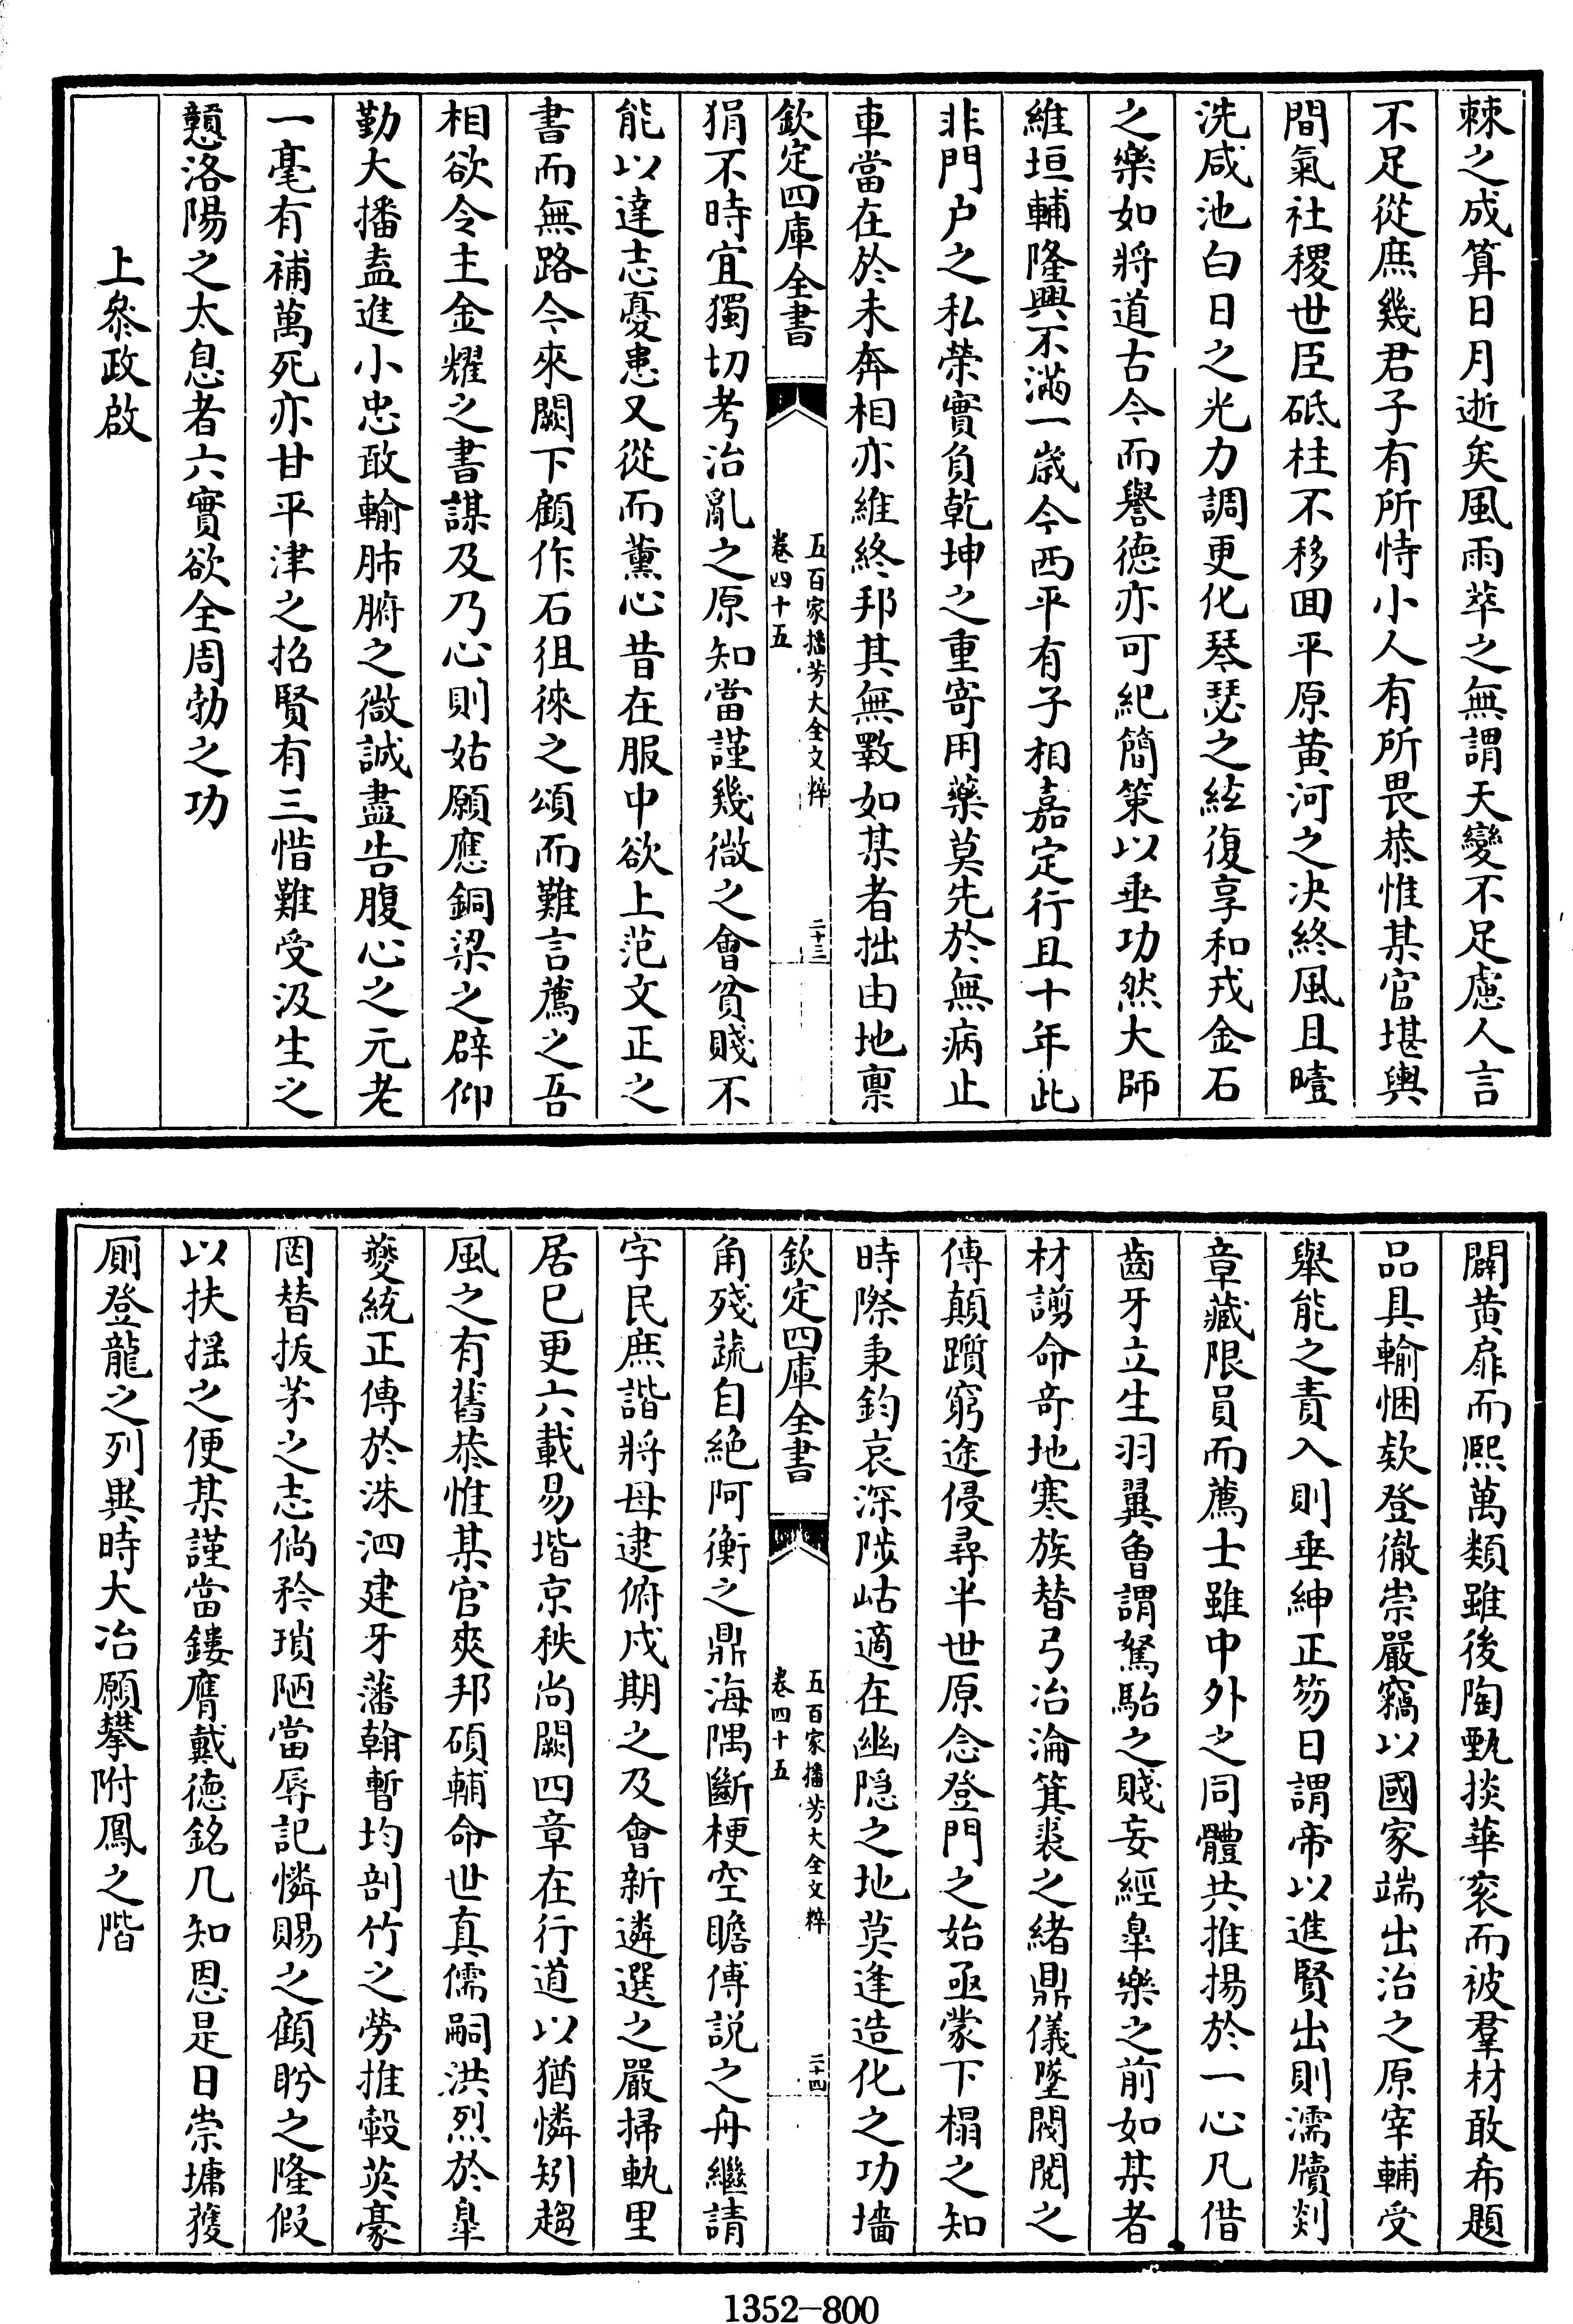 棘之成算日月逝矣風雨萃之無謂天變不足慮人言
不足從庶幾君子有所恃小人有所畏恭惟某官堪輿
間氣社稷世臣砥柱不移回平原黄河之决終風且曀
洗咸池白日之光力調更化琴瑟之絃復享和戎金石
之樂如將道古今而譽徳亦可紀簡策以垂功然大師
維垣輔隆興不滿一歲今西平有子相嘉定行且十年此
非門户之私榮實負乾坤之重寄用藥莫先於無病止
車當在於未奔相亦維終邦其無斁如某者拙由地禀
欽定四庫全書
五百家播芳大全文粹
卷四十五
二十三
狷不時宜獨切考治亂之原知當謹幾微之會貧賤不
能以達志憂患又從而薰心昔在服中欲上范文正之
書而無路今來闕下顧作石徂徠之頌而難言薦之吾
相欲令主金耀之書謀及乃心則姑願應銅梁之辟仰
勤大播盍進小忠敢輸肺腑之微誠盡告腹心之元老
一毫有補萬死亦甘平津之招賢有三惜難受汲生之
戇洛陽之太息者六實欲全周勃之功
上叅政啟
闢黄扉而熙萬類雖後陶甄掞華衮而被羣材敢希題
品具輸悃欵登徹崇嚴竊以國家端出治之原宰輔受
舉能之責入則垂紳正笏日謂帝以進賢出則濡牘剡
章藏限員而薦士雖中外之同體共推揚於一心凡借
齒牙立生羽翼魯謂駑駘之賤妄經臯樂之前如某者
材謭命竒地寒族替弓冶淪箕裘之緒鼎儀墜閥閱之
傳顛躓窮途侵尋半世原念登門之始亟蒙下榻之知
時際秉鈞哀深陟岵適在幽隐之地莫逢造化之功墻
欽定四庫全書
五百家播芳大全文粹
卷四十五
二十四
角殘蔬自絶阿衡之鼎海隅斷梗空瞻傅説之舟繼請
字民庶諧將母逮俯戍期之及會新遴選之嚴掃軌里
居已更六載易堦京秩尚闕四章在行道以猶憐矧趨
風之有舊恭惟某官爽邦碩輔命世真儒嗣洪烈於臯
夔統正傳於洙泗建牙藩翰暫均剖竹之勞推轂英豪
罔替拔茅之志倘矜瑣陋當辱記憐賜之顧盻之隆假
以扶揺之便某謹當鏤膺戴徳銘几知恩是日崇墉獲
厠登龍之列異時大冶願攀附鳳之階
1352—800